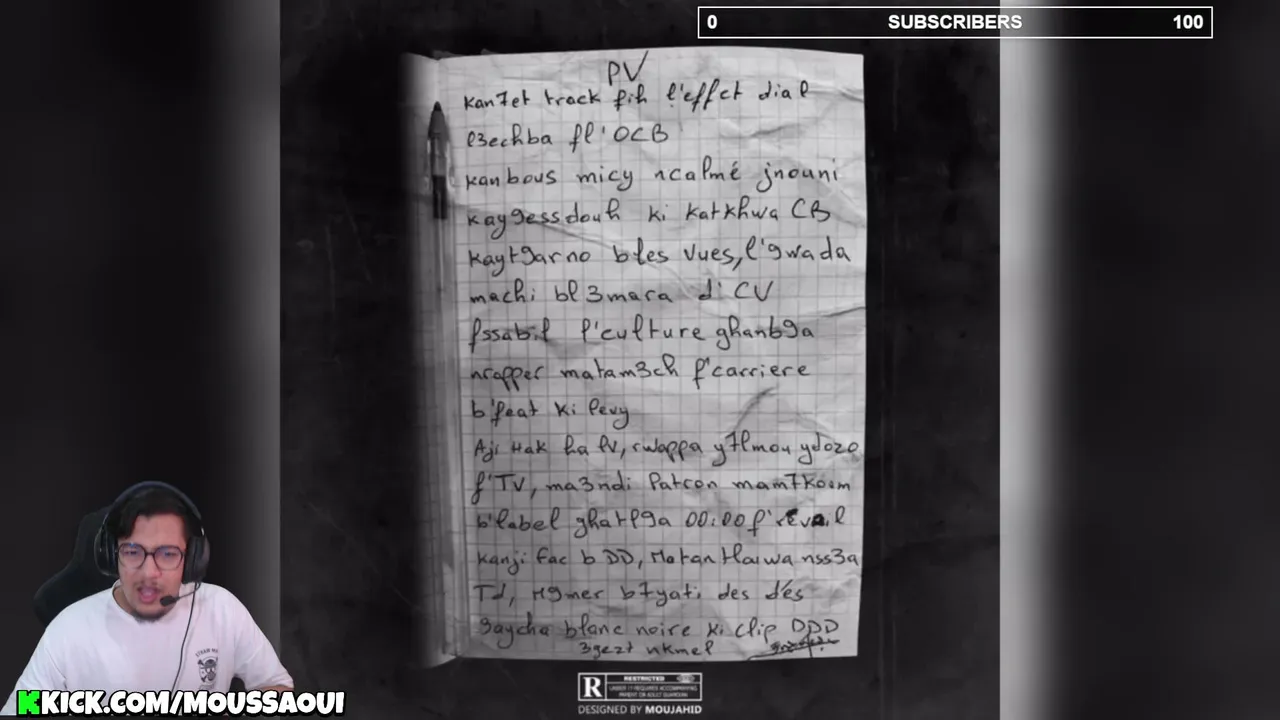 0 SUBSCRIBERS 100
PV
kan7et track fih l'effet dial
l3echba fl'OCB
kanbous micy ncalmé jnouni
kay9essdouh ki katkhwa CB
kayt9arno bles vues, l'9wada
machi bl3mara d'CV
fssabil l'culture ghanb9a
nrapper matam3ch f'carriere
b'feat ki levy
Aji Hak ha lV, rwappa y7lmou ydozo
f'TV, ma3ndi Patron mam7koum
b'label ghatl9a 00:00 f'réveil
kanji fac b DD, Matan nss3a
Td, M9mer b7yati des dés
3aycha blanc noire ki clip DDD
3gezt nkmel
R RESTRICTED
UNDER 17 REQUIRES ACCOMPANYING
PARENT OR ADULT GUARDIAN
DESIGNED BY MOUJAHID
KICK.COM/MOUSSAOUI